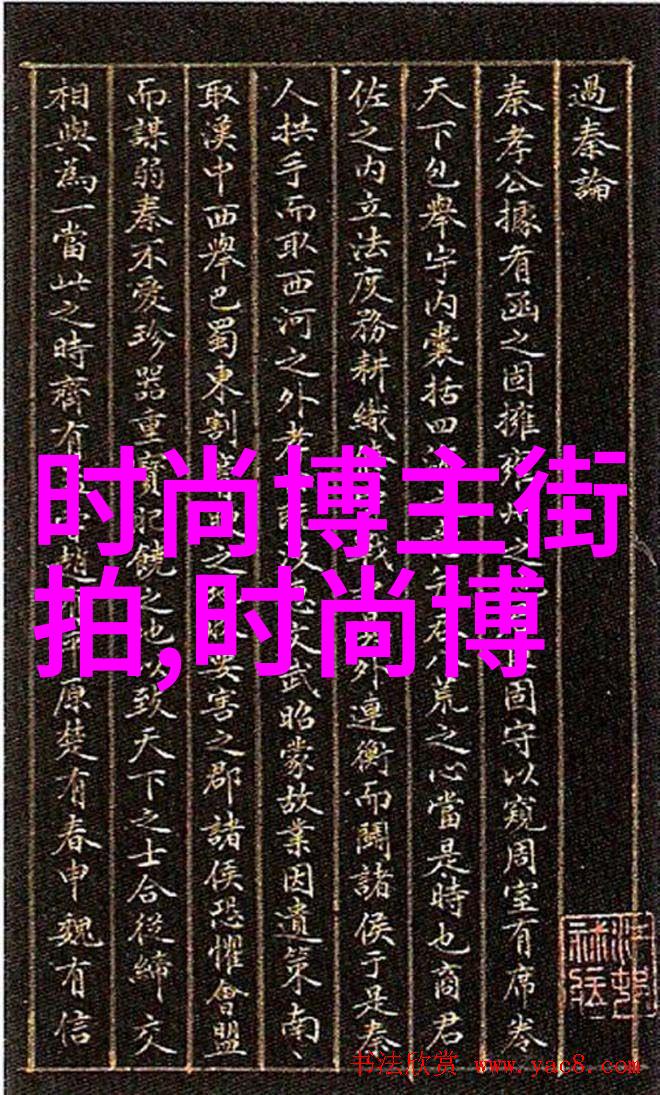 過秦論
秦孝公據有函之固擁雍州之固守以窺周室有席卷
天下包舉宇内囊括四八荒之心當是時也商君
佐之内立法度務耕織外連衡而鬭諸侯于是秦
人拱手而取西河之外惠文武昭蒙故業因遺策南、
取漢中西舉巴蜀東割之要害之郡諸侯恐懼會盟
而謀弱秦不愛珍器重寶肥饒之地以致天下之士合從締交
相與為一當此之時齊有趙原楚有春申魏有信
时尚博主街
拍,时尚博
书法欣赏 www.yac8.com